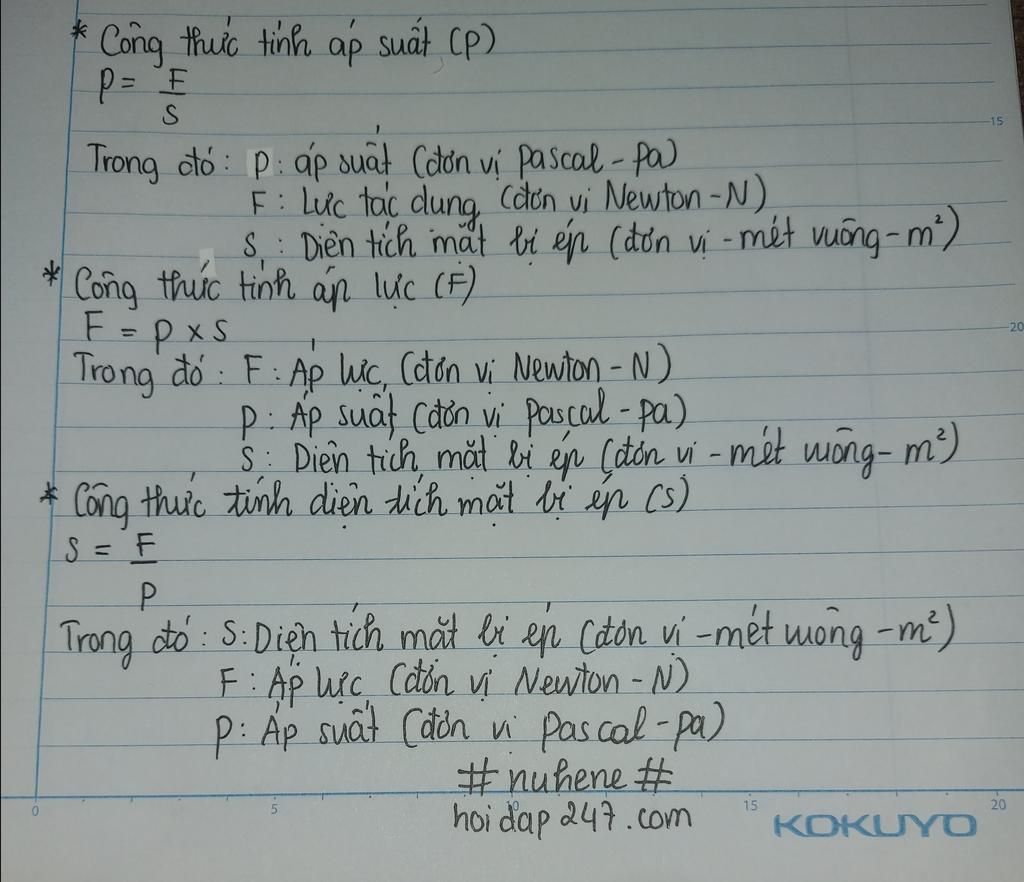 * Công thức tính áp suất (p)
p = F
S
Trong đó: p: áp suất (đơn vị pascal - pa)
F: Lực tác dụng (đơn vị Newton - N)
S: Diện tích mặt bị ép (đơn vị - mét vuông - m²)
* Công thức tính áp lực (F)
F = p x s
Trong đó: F: Áp lực (đơn vị Newton - N)
p: Áp suất (đơn vị pascal - pa)
S: Diện tích mặt bị ép (đơn vị - mét vuông - m²)
* Công thức tính diện tích mặt bị ép (s)
s = F
p
Trong đó: S: Diện tích mặt bị ép (đơn vị - mét vuông - m²)
F: Áp lực (đơn vị Newton - N)
p: Áp suất (đơn vị pascal - pa)
# nuhene #
hoi dap 247.com
0 5 10 15 20
KOKUYO
15
20